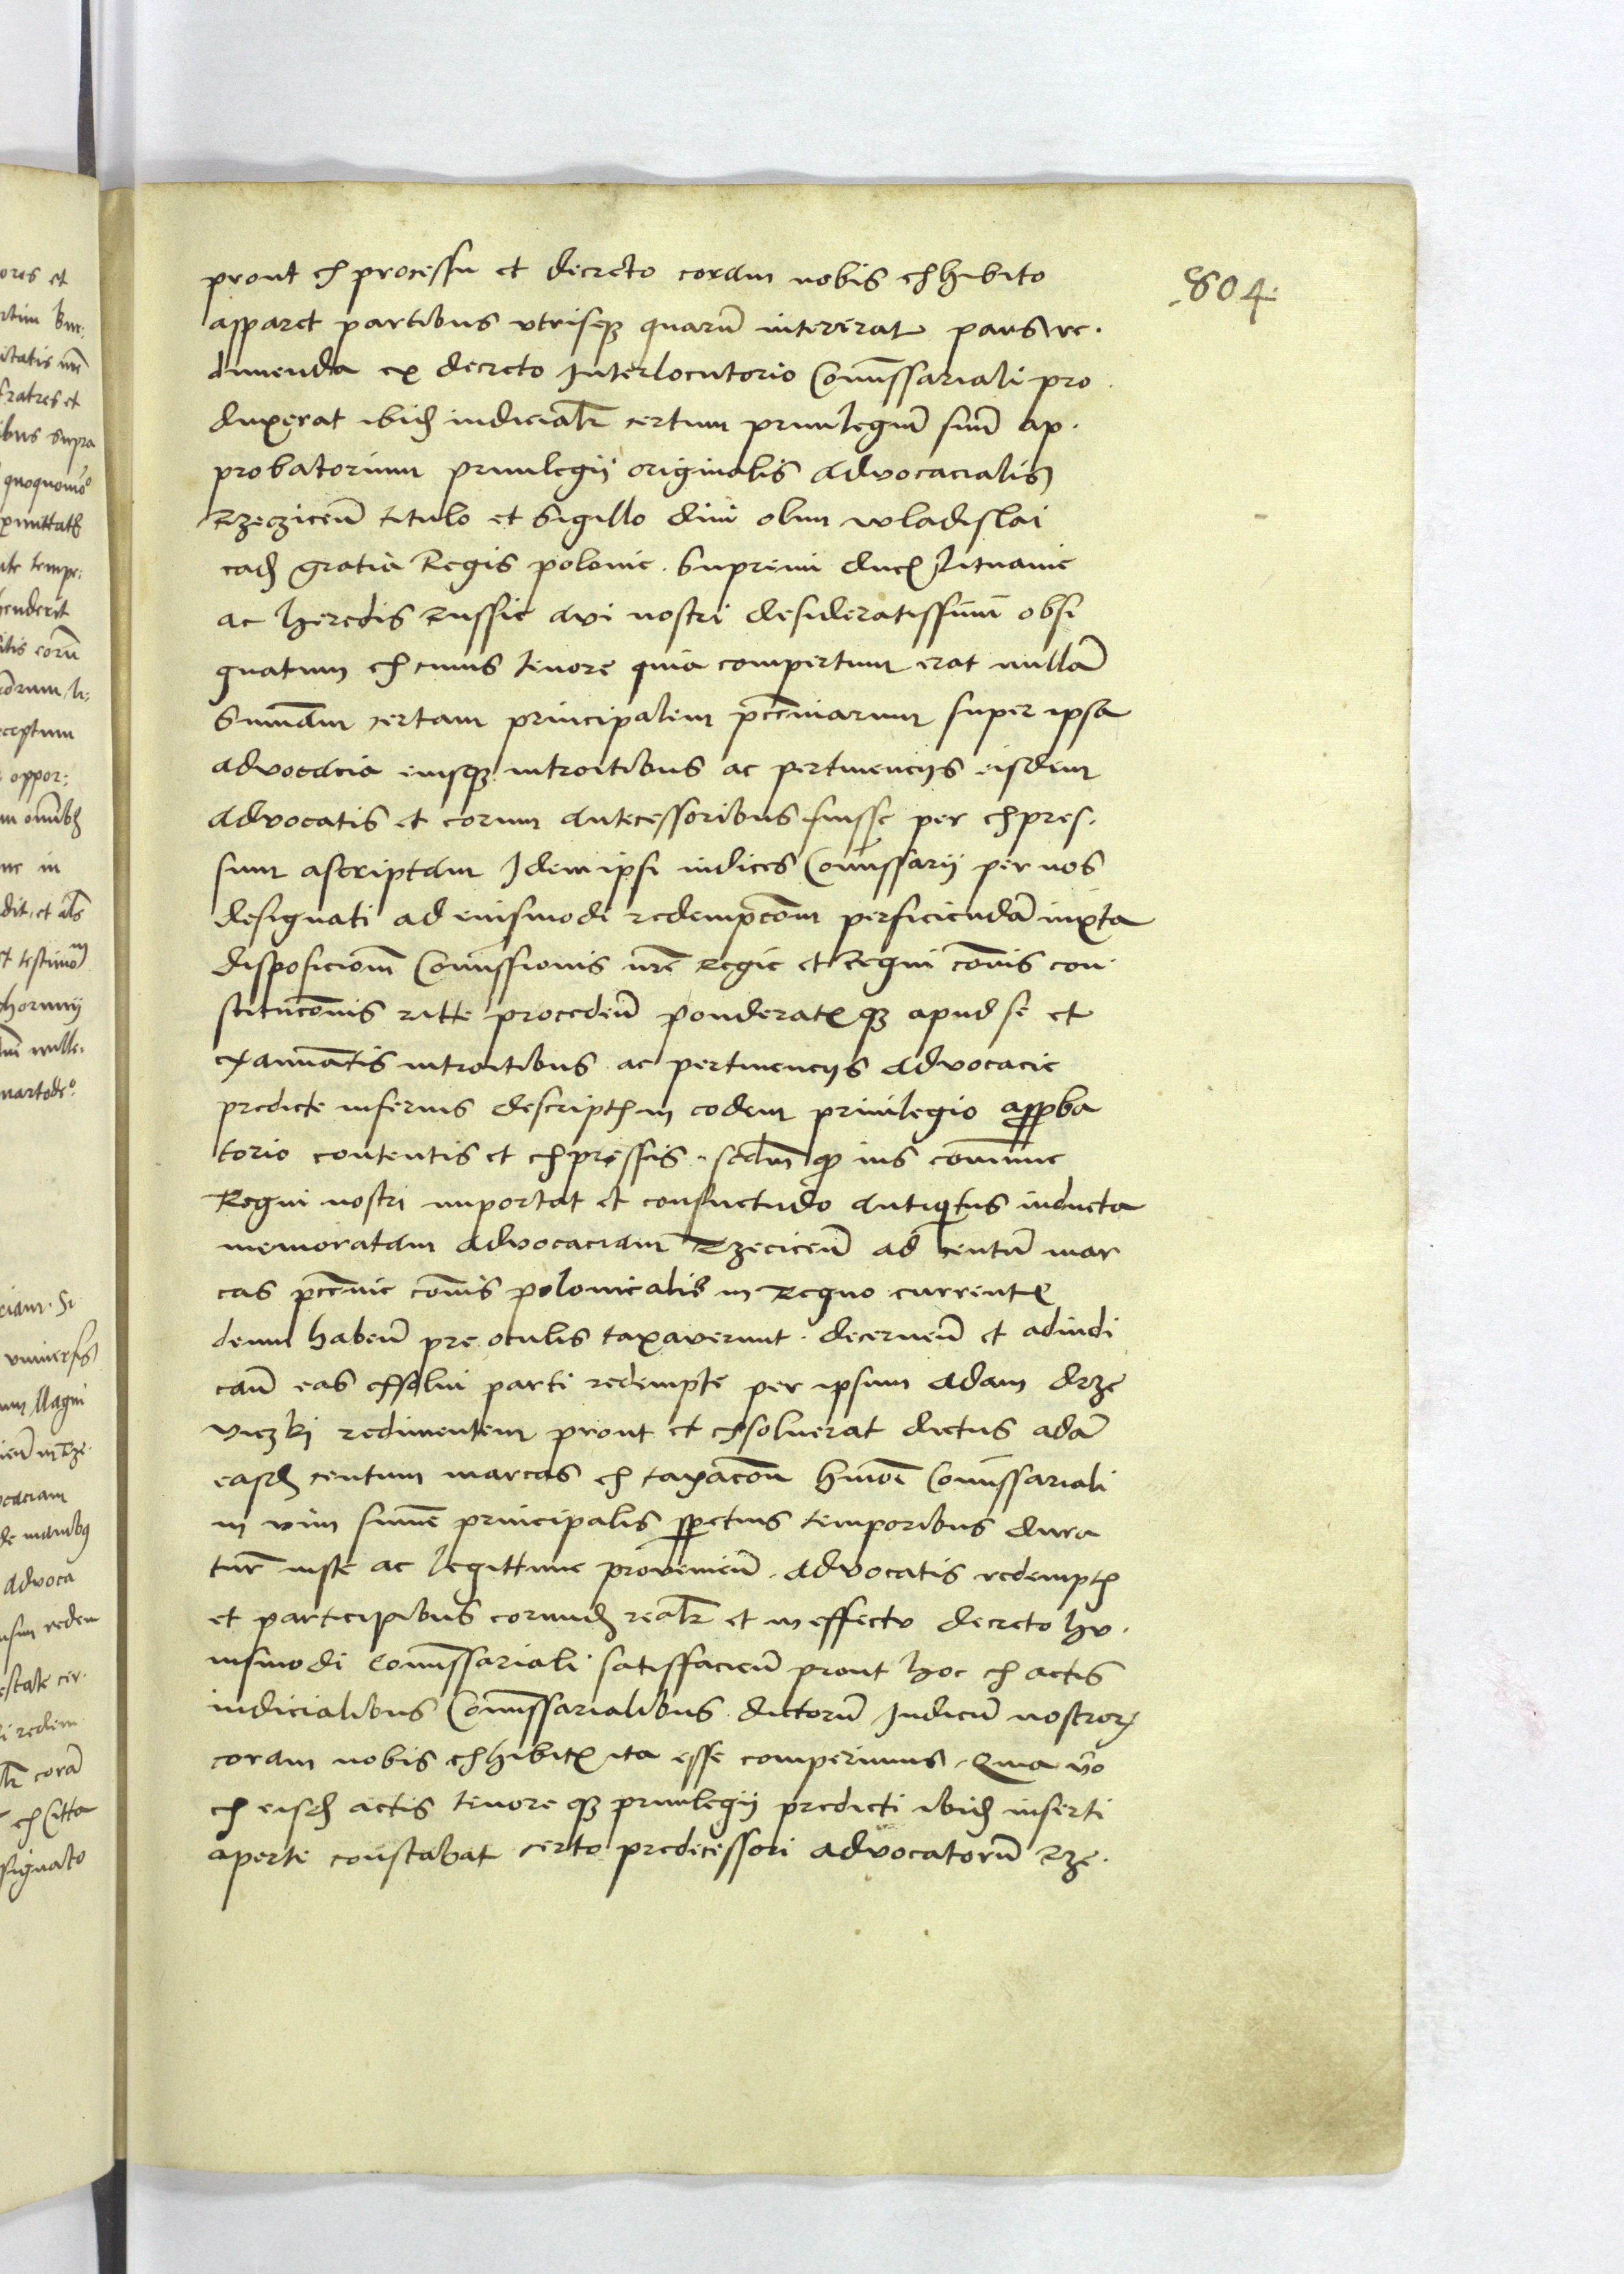 804
prout ex processu et decreto coram nobis exhibito
apparet partibus vtrisqz quarū intererat pars re.
dimenda ex decreto Interlocutorio Comissariali pro
duxerat ibid iudicialr certum priuilegiū suū ap.
probatorium priuilegij originalis advocacialis
Rzeziceñ titulo et Sigillo diui olim wladislai
eađ gratia Regis polonie . Supremi ducis lituanie
ac heredis Russie avi nostri desideratissimi obsi
gnatum ex cuius tenore quia compertum erat nullā
Sumam certam principalem pcc̄uniarum super ipsa
advocacia eiusqz introitibus ac pertinencijs eisdem
advocatis et eorum antecessoribus fuisse per expres.
sum ascriptam Idem ipsi iudices Comissarij per nos
designati ad eiusmodi redempcōm perficiendā iuxta
disposicionm Comissionis nr̄e Regie et Regni cōmis con
stitucōnis ratte procedeñ ponderatis qz apud se et
examinātis introitibus ac pertinencijs advocacie
predicte inferius descriptis in eodem priuilegio approba
torio contentis et expressis . scdm qz ius comune
Regni nostri importat et consuetudo antiquitus inducta
memoratam advocaciam Rzeciceñ ad centū mar
cas pccunie cōmis polonicalis in Regno currentis
deum habeñ pre oculis taxaverunt . decerneñ et adiudi
cañ eas exsolui parti redempte per ipsum Adam drze
viczkj redimentem prout et exsoluerat dictus adā
easd centum marcas ex taxacōn hmōi Comissariali
in vim sume principalis perpetuis temporibus dura
tur̄ iuste ac legittime provenieñ . advocatis redemptis
et participibus eorund realr et in effectu decreto hu.
iusmodi Comissariali satisfacieñ prout hoc ex actis
iudicialibus Comissarialibus dictorū Iudicū nostror
coram nobis exhibitis ita esse comperimus . Quia vo
ex eisd actis tenore qz priuilegij predicti ibid inserti
aperte constabat certo predecessori advocatorū Rze.